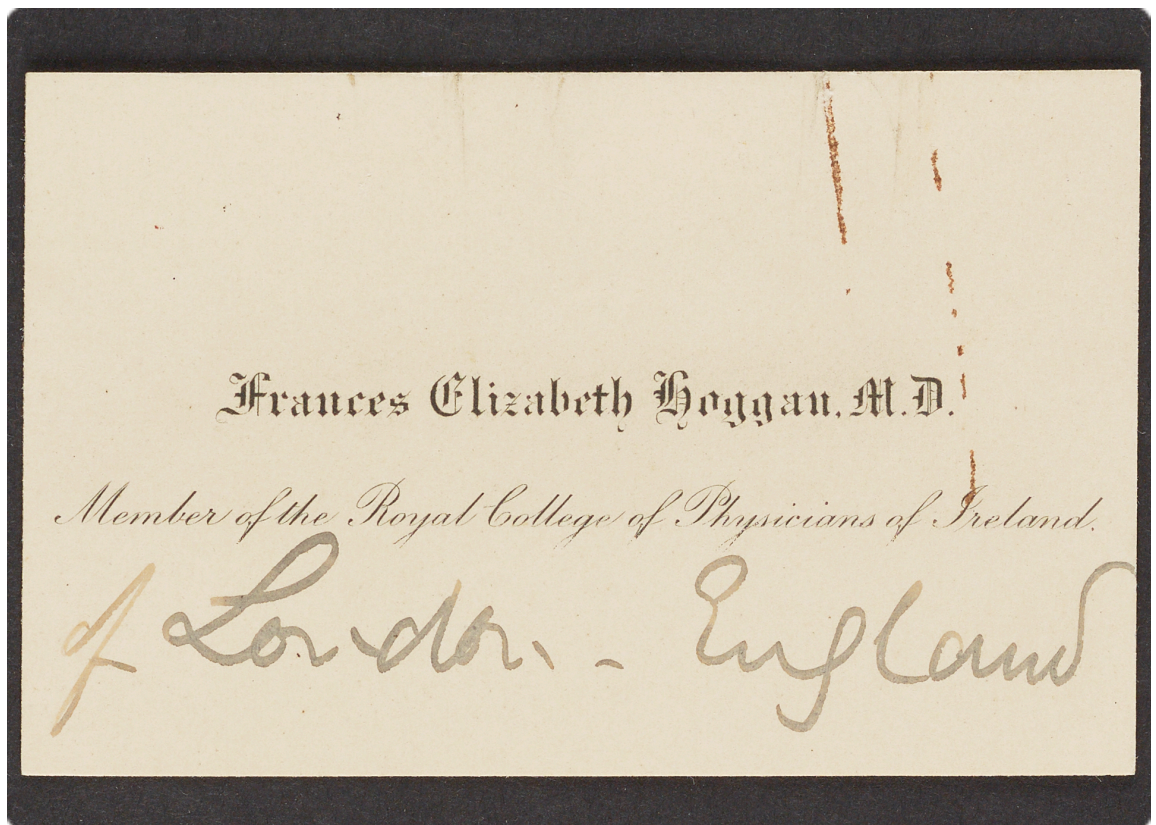 Frances Elizabeth Hoggan, M.D.
Member of the Royal College of Physicians of Ireland.
of London - England